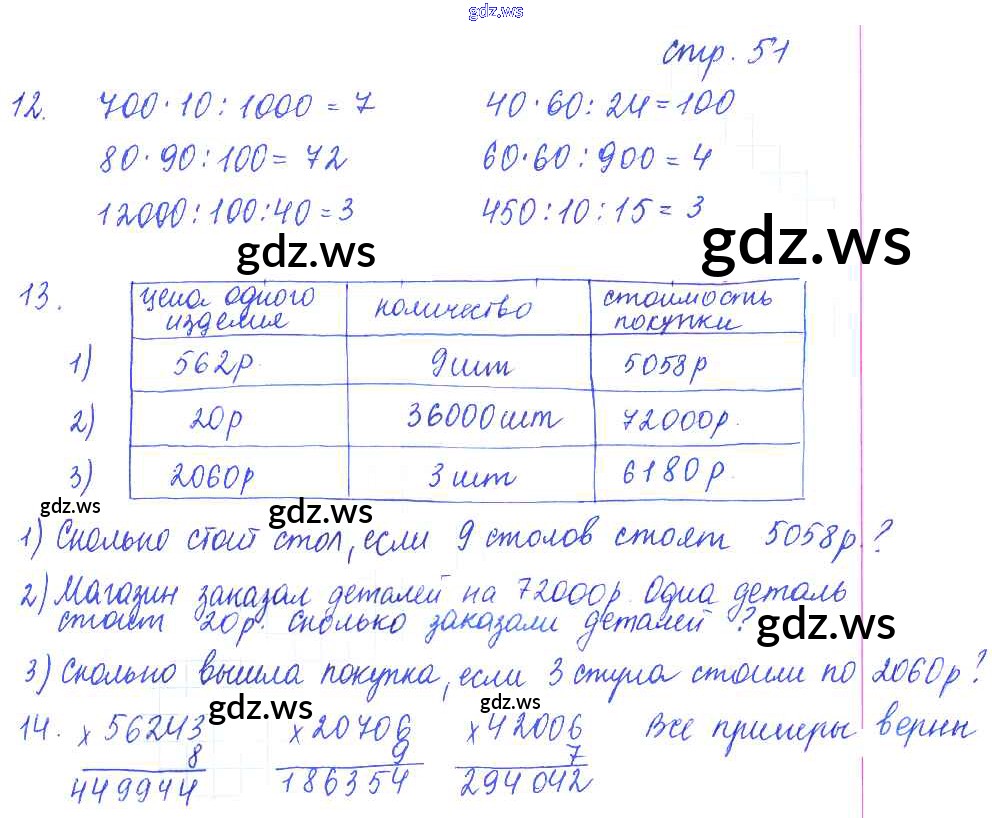 gdz.ws
стр. 51
12. 700·10:1000=7 40·60:24=100
80·90:100=72 60·60:900=4
12000:100:40=3 450:10:15=3
gdz.ws gdz.ws
13. цена одного изделия количество стоимость покупки
1) 562р 9шт 5058р
2) 20р 36000шт 72000р.
3) 2060р 3шт 6180р.
gdz.ws gdz.ws
1) Сколько стоит стол, если 9 столов стоят 5058р.?
2) Магазин заказал деталей на 72000р. Одна деталь
стоит 20р. Сколько заказали деталей?
gdz.ws
3) Сколько вышла покупка, если 3 стула стоили по 2060р?
gdz.ws gdz.ws
14. х56243 х20706 х42006 Все примеры верны
8 9 7
449944 186354 294042